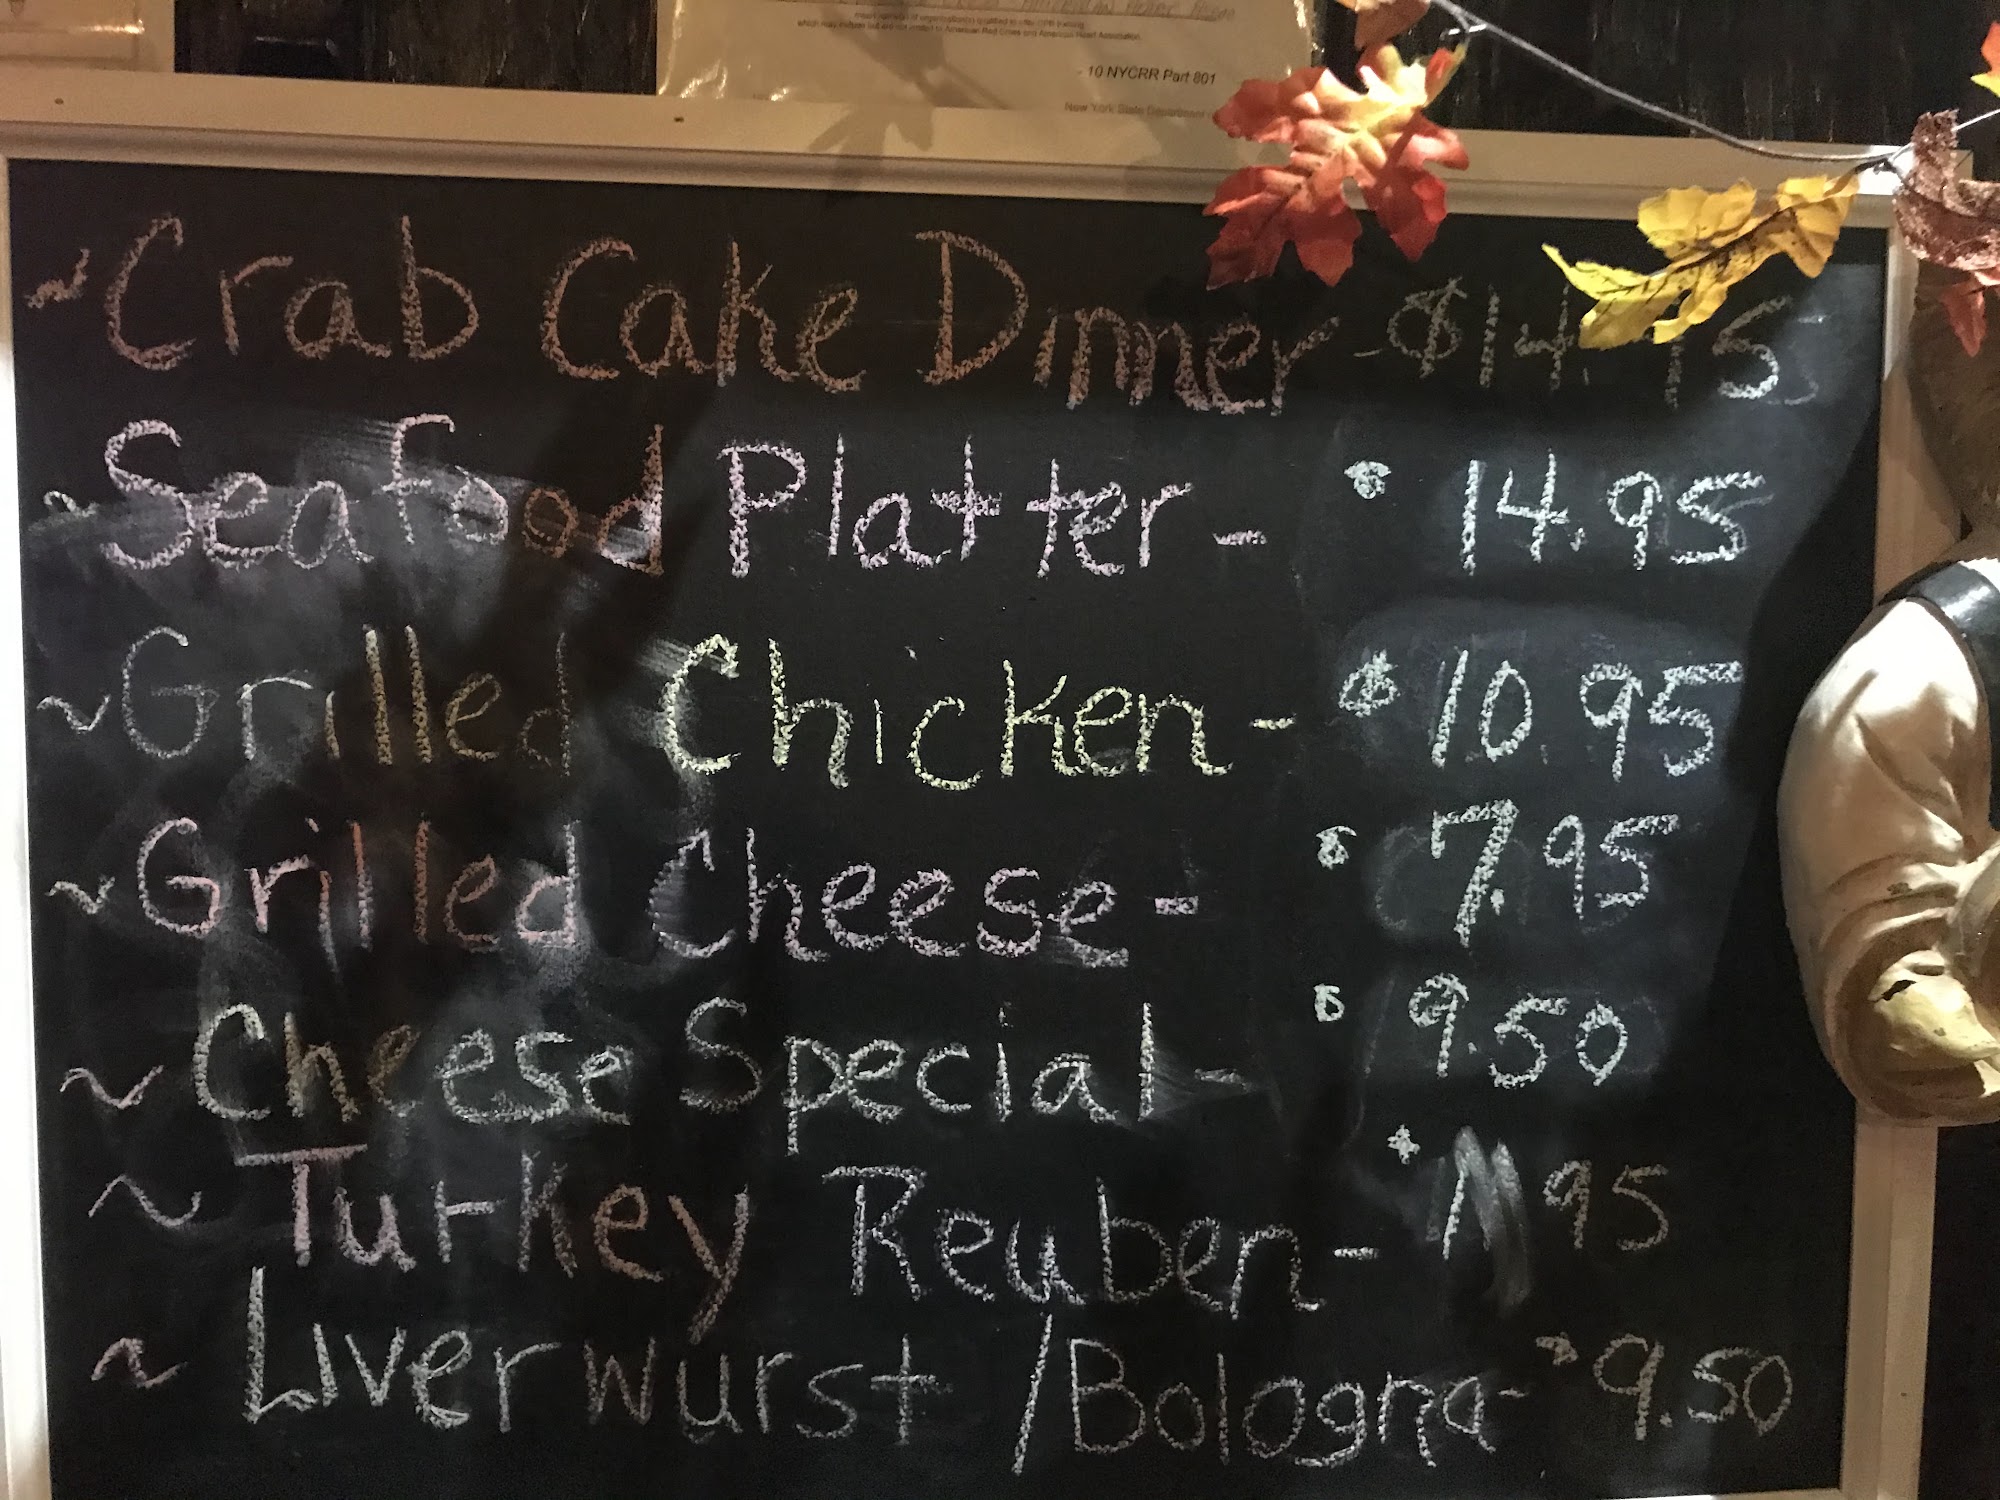 which may include but are not limited to American Red Cross and American Heart Association.
- 10 NYCRR Part 801
New York State Department
~ Crab Cake Dinner - $14.95
~ Seafood Platter - $14.95
~ Grilled Chicken - $10.95
~ Grilled Cheese - $7.95
~ Cheese Special - $9.50
~ Turkey Reuben - 95
~ Liverwurst / Bologna - $9.50